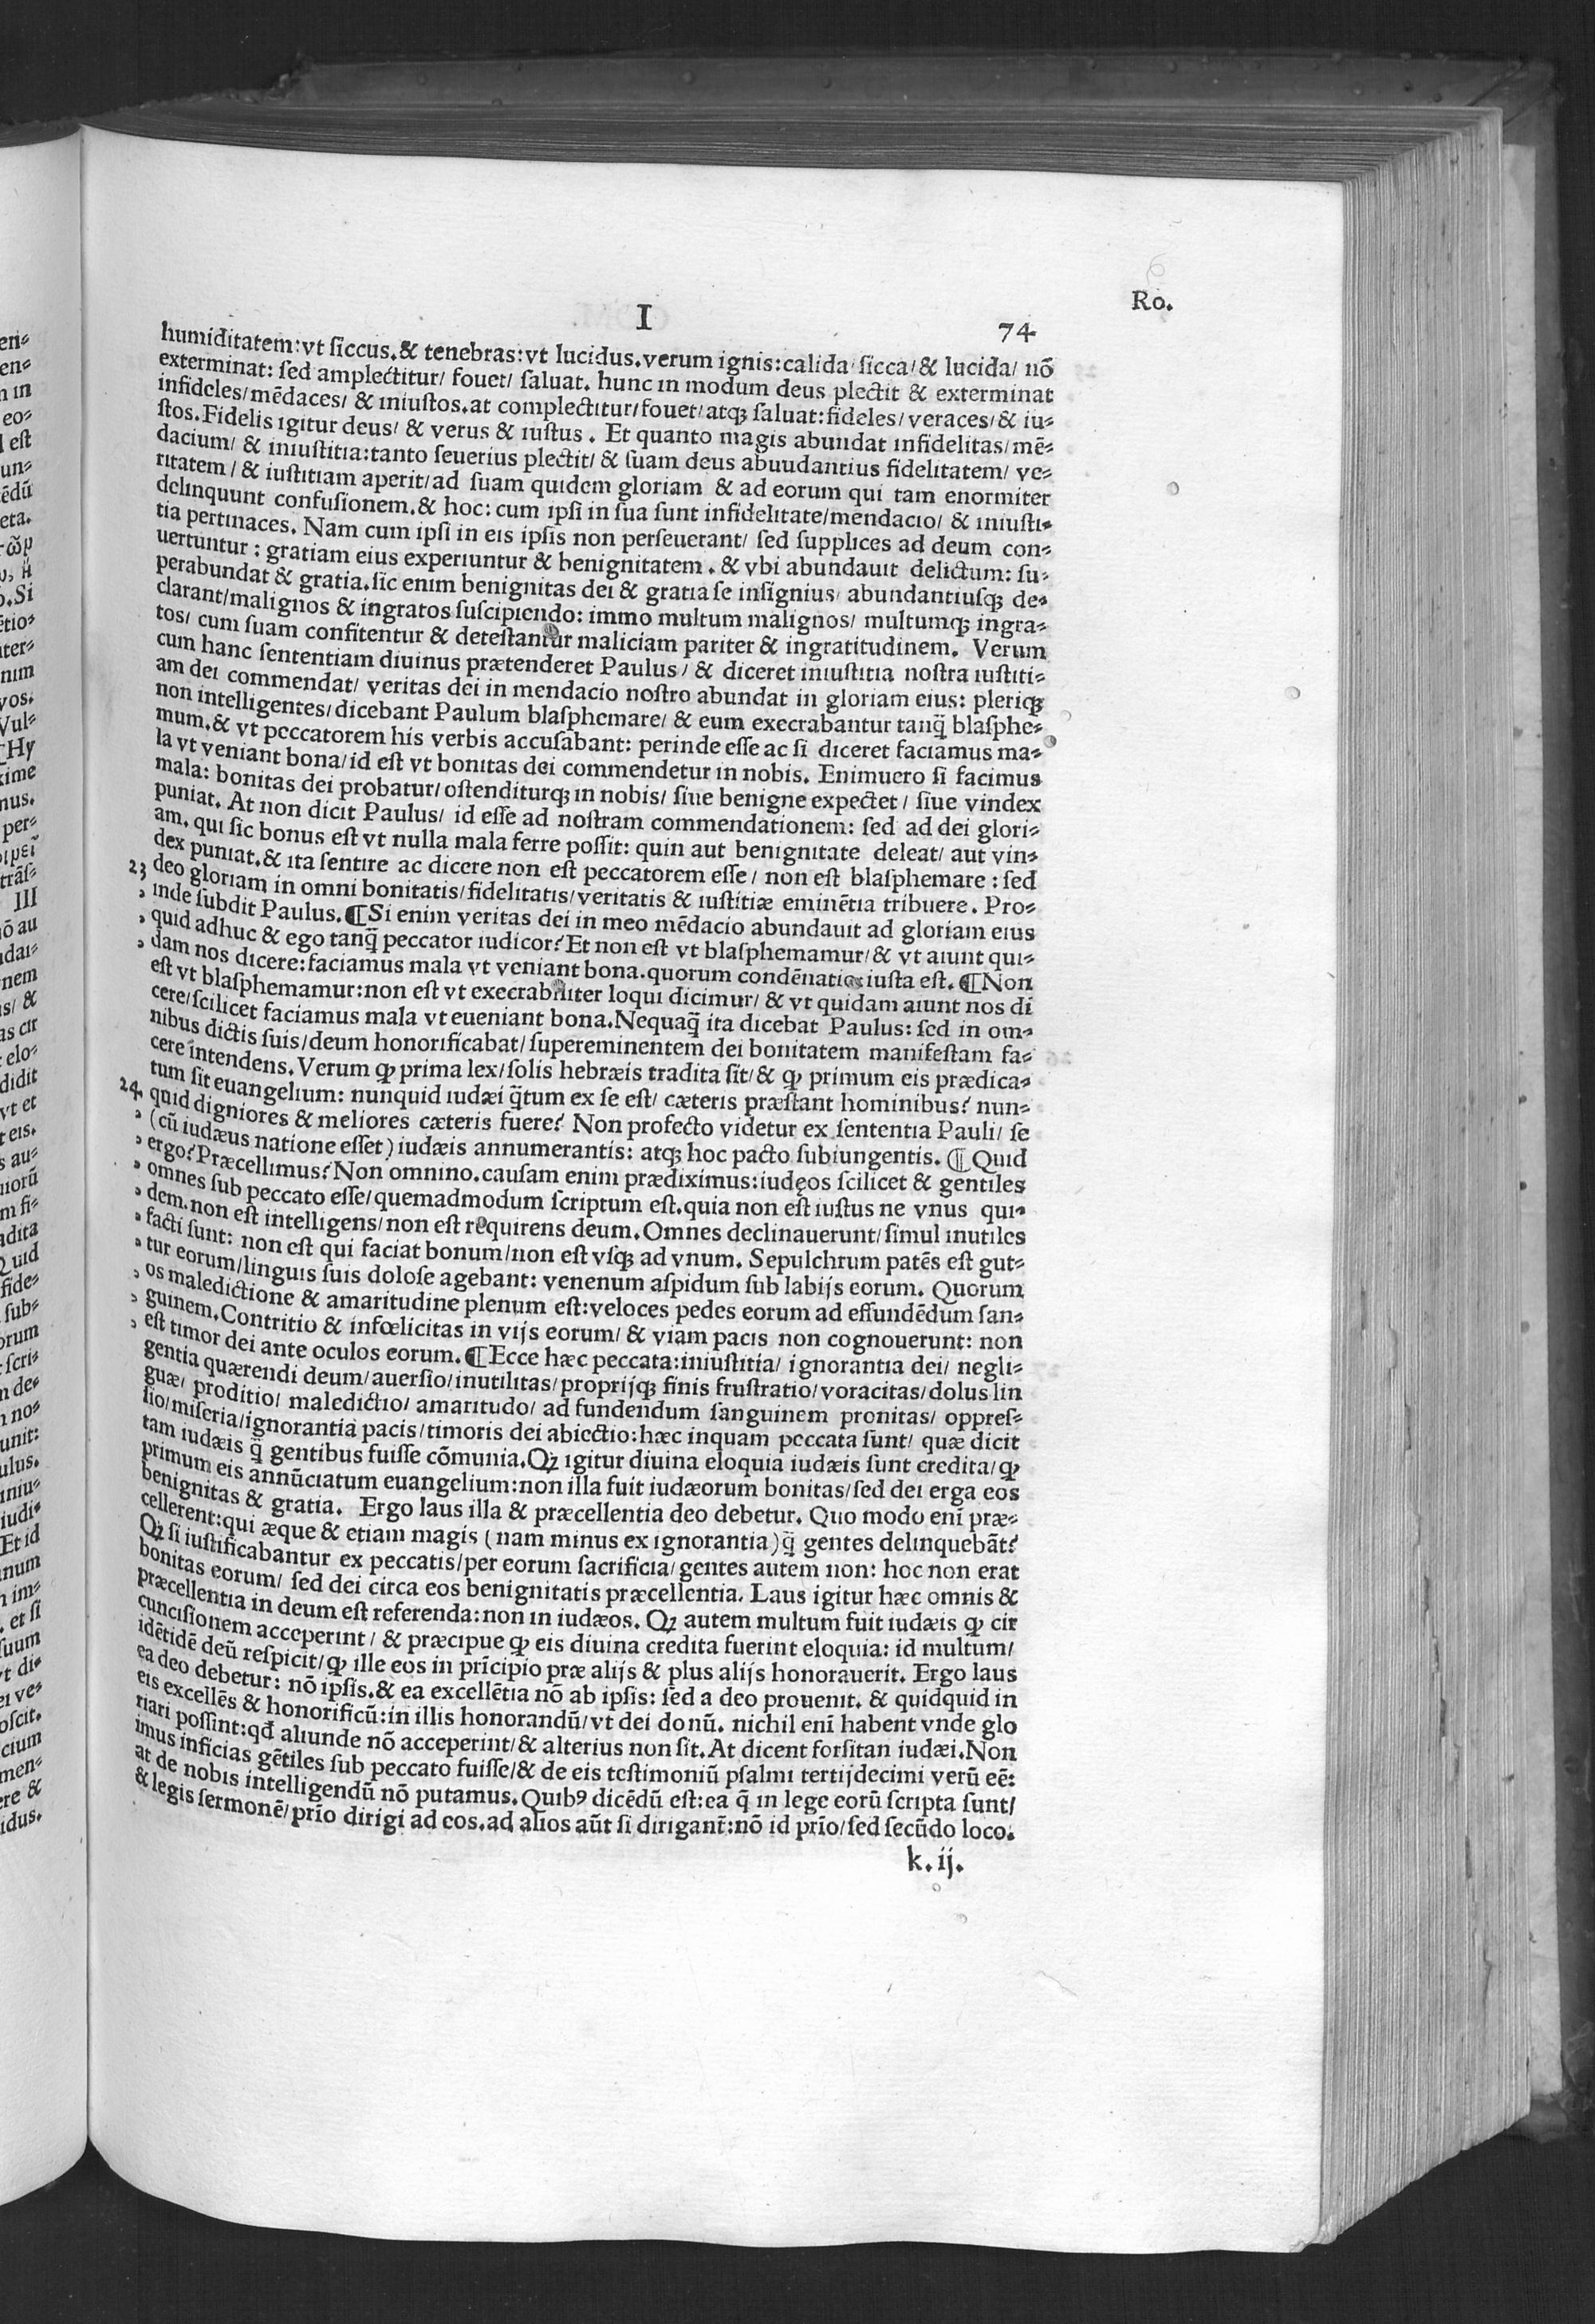 Ro.
I
74
humiditatem:vt ſiccus.& tenebras:vt lucidus.verum ignis:calida/ſicca/& lucida/ nõ
exterminat: ſed amplectitur/ fouet/ ſaluat. hunc in modum deus plectit & exterminat
infideles/mẽdaces/ & iniuſtos.at complectitur/fouet/atqꝫ ſaluat:fideles/veraces/& iu⸗
ſtos.Fidelis igitur deus/ & verus & iuſtus . Et quanto magis abundat infidelitas/mẽ⸗
dacium/ & iniuſtitia:tanto ſeuerius plectit/ & ſuam deus abuudantius fidelitatem/ ve⸗
ritatem/ & iuſtitiam aperit/ad ſuam quidem gloriam & ad eorum qui tam enormiter
delinquunt confuſionem.& hoc: cum ipſi in ſua ſunt infidelitate/mendacio/ & iniuſti⸗
tia pertinaces. Nam cum ipſi in eis ipſis non perſeuerant/ ſed ſupplices ad deum con⸗
uertuntur : gratiam eius experiuntur & benignitatem . & vbi abundauit delictum: ſu⸗
perabundat & gratia.ſic enim benignitas dei & gratia ſe inſignius/ abundantiuſqꝫ de⸗
clarant/malignos & ingratos ſuſcipiendo: immo multum malignos/ multumqꝫ ingra⸗
tos/ cum ſuam confitentur & deteſtantur maliciam pariter & ingratitudinem. Verum
cum hanc ſententiam diuinus prætenderet Paulus/ & diceret iniuſtitia noſtra iuſtiti⸗
am dei commendat/ veritas dei in mendacio noſtro abundat in gloriam eius: pleriqꝫ
non intelligentes/dicebant Paulum blaſphemare/ & eum execrabantur tanq̃ blaſphe⸗
mum.& vt peccatorem his verbis accuſabant: perinde eſſe ac ſi diceret faciamus ma⸗
la vt veniant bona/id eſt vt bonitas dei commendetur in nobis. Enimuero ſi facimus
mala: bonitas dei probatur/oſtenditurqꝫ in nobis/ ſiue benigne expectet / ſiue vindex
puniat. At non dicit Paulus/ id eſſe ad noſtram commendationem: ſed ad dei glori⸗
am. qui ſic bonus eſt vt nulla mala ferre poſſit: quin aut benignitate deleat/ aut vin⸗
dex puniat.& ita ſentire ac dicere non eſt peccatorem eſſe/ non eſt blaſphemare : ſed
23 deo gloriam in omni bonitatis/fidelitatis/veritatis & iuſtitiæ eminẽtia tribuere. Pro⸗
, inde ſubdit Paulus.¶Si enim veritas dei in meo mẽdacio abundauit ad gloriam eius
, quid adhuc & ego tanq̃ peccator iudicor? Et non eſt vt blaſphemamur/& vt aiunt qui⸗
, dam nos dicere:faciamus mala vt veniant bona.quorum condẽnatio iuſta eſt. ¶Non
eſt vt blaſphemamur:non eſt vt execrabiliter loqui dicimur/ & vt quidam aiunt nos di
cere/ſcilicet faciamus mala vt eueniant bona.Nequaq̃ ita dicebat Paulus: ſed in om⸗
nibus dictis ſuis/deum honorificabat/ſupereminentem dei bonitatem manifeſtam fa⸗
cere intendens. Verum ꝙ prima lex/ſolis hebræis tradita ſit/ & ꝙ primum eis prædica⸗
tum ſit euangelium: nunquid iudæi q̃tum ex ſe eſt/ cæteris præſtant hominibus? nun⸗
24 quid digniores & meliores cæteris fuere? Non profecto videtur ex ſententia Pauli/ ſe
, (cũ iudæus natione eſſet) iudæis annumerantis: atqꝫ hoc pacto ſubiungentis. ¶Quid
, ergo? Præcellimus? Non omnino.cauſam enim prædiximus:iudęos ſcilicet & gentiles
, omnes ſub peccato eſſe/quemadmodum ſcriptum eſt.quia non eſt iuſtus ne vnus qui⸗
, dem.non eſt intelligens/non eſt requirens deum.Omnes declinauerunt/ſimul inutiles
, facti ſunt: non eſt qui faciat bonum/non eſt vſqꝫ ad vnum. Sepulchrum patẽs eſt gut⸗
, tur eorum/linguis ſuis doloſe agebant: venenum aſpidum ſub labijs eorum. Quorum
, os maledictione & amaritudine plenum eſt:veloces pedes eorum ad effundẽdum ſan⸗
, guinem.Contritio & infœlicitas in vijs eorum/ & viam pacis non cognouerunt: non
, eſt timor dei ante oculos eorum.¶Ecce hæc peccata:iniuſtitia/ ignorantia dei/ negli⸗
gentia quærendi deum/auerſio/inutilitas/proprijqꝫ finis fruſtratio/voracitas/dolus lin
guæ/ proditio/ maledictio/ amaritudo/ ad fundendum ſanguinem pronitas/ oppreſ⸗
ſio/miſeria/ignorantia pacis/timoris dei abiectio:hæc inquam peccata ſunt/ quæ dicit
tam iudæis q̃ gentibus fuiſſe cõmunia.Qꝫ igitur diuina eloquia iudæis ſunt credita/ꝙ
primum eis annũciatum euangelium:non illa fuit iudæorum bonitas/ſed dei erga eos
benignitas & gratia. Ergo laus illa & præcellentia deo debetur. Quo modo enĩ præ⸗
cellerent:qui æque & etiam magis (nam minus ex ignorantia)q̃ gentes delinquebãt?
Qꝫ ſi iuſtificabantur ex peccatis/per eorum ſacrificia/gentes autem non: hoc non erat
bonitas eorum/ ſed dei circa eos benignitatis præcellentia. Laus igitur hæc omnis &
præcellentia in deum eſt referenda:non in iudæos. Qꝫ autem multum fuit iudæis ꝙ cir
cunciſionem acceperint/ & præcipue ꝙ eis diuina credita fuerint eloquia: id multum/
idẽtidẽ deũ reſpicit/ꝙ ille eos in prĩcipio præ alijs & plus alijs honorauerit. Ergo laus
ea deo debetur: nõ ipſis.& ea excellẽtia nõ ab ipſis: ſed a deo prouenit. & quidquid in
eis excellẽs & honorificũ:in illis honorandũ/vt dei donũ. nichil enĩ habent vnde glo
riari poſſint:qđ aliunde nõ acceperint/& alterius non ſit.At dicent forſitan iudæi.Non
imus inficias gẽtiles ſub peccato fuiſſe/& de eis teſtimoniũ pſalmi tertijdecimi verũ eẽ:
at de nobis intelligendũ nõ putamus.Quibꝰ dicẽdũ eſt:ea q̃ in lege eorũ ſcripta ſunt/
& legis ſermonẽ/prĩo dirigi ad eos.ad alios aũt ſi dirigant̃:nõ id prĩo/ſed ſecũdo loco.
k.ij.